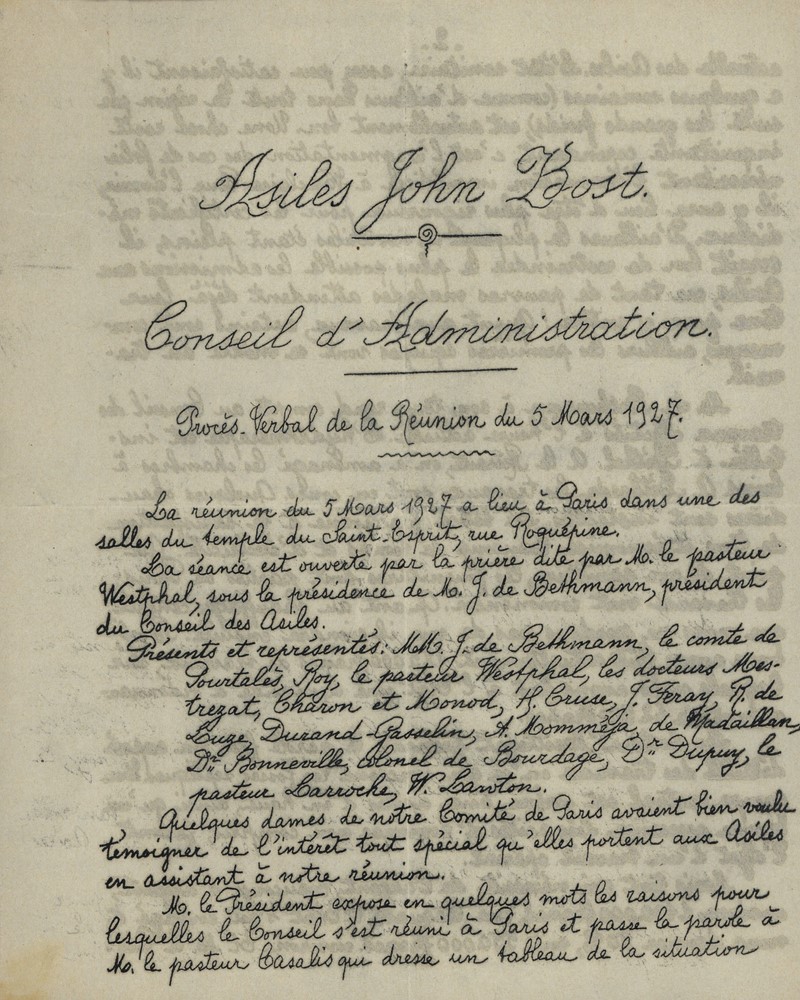 Asiles John Bost.
Conseil d'Administration.
Procès-Verbal de la Réunion du 5 Mars 1927.
La réunion du 5 Mars 1927 a lieu à Paris dans une des
salles du temple du Saint-Esprit, rue Roquépine.
La séance est ouverte par la prière dite par M. le pasteur
Westphal, sous la présidence de M. J. de Bethmann, président
du Conseil des Asiles.
Présents et représentés: MM. J. de Bethmann, le comte de
Pourtalès, Roy, le pasteur Westphal, les docteurs Mes-
trezat, Charon et Monod, H. Cruse, J. Feray, R. de
Luze, Durand-Gasselin, A. Momméja, de Madaillan,
Dr Bonneville, colonel de Bourdage, Dr Dupuy, le
pasteur Larroche, W. Lawton.
Quelques dames de notre Comité de Paris avaient bien voulu
témoigner de l'intérêt tout spécial qu'elles portent aux Asiles
en assistant à notre réunion.
M. le Président expose en quelques mots les raisons pour
lesquelles le Conseil s'est réuni à Paris et passe la parole à
M. le pasteur Casalis qui dresse un tableau de la situation